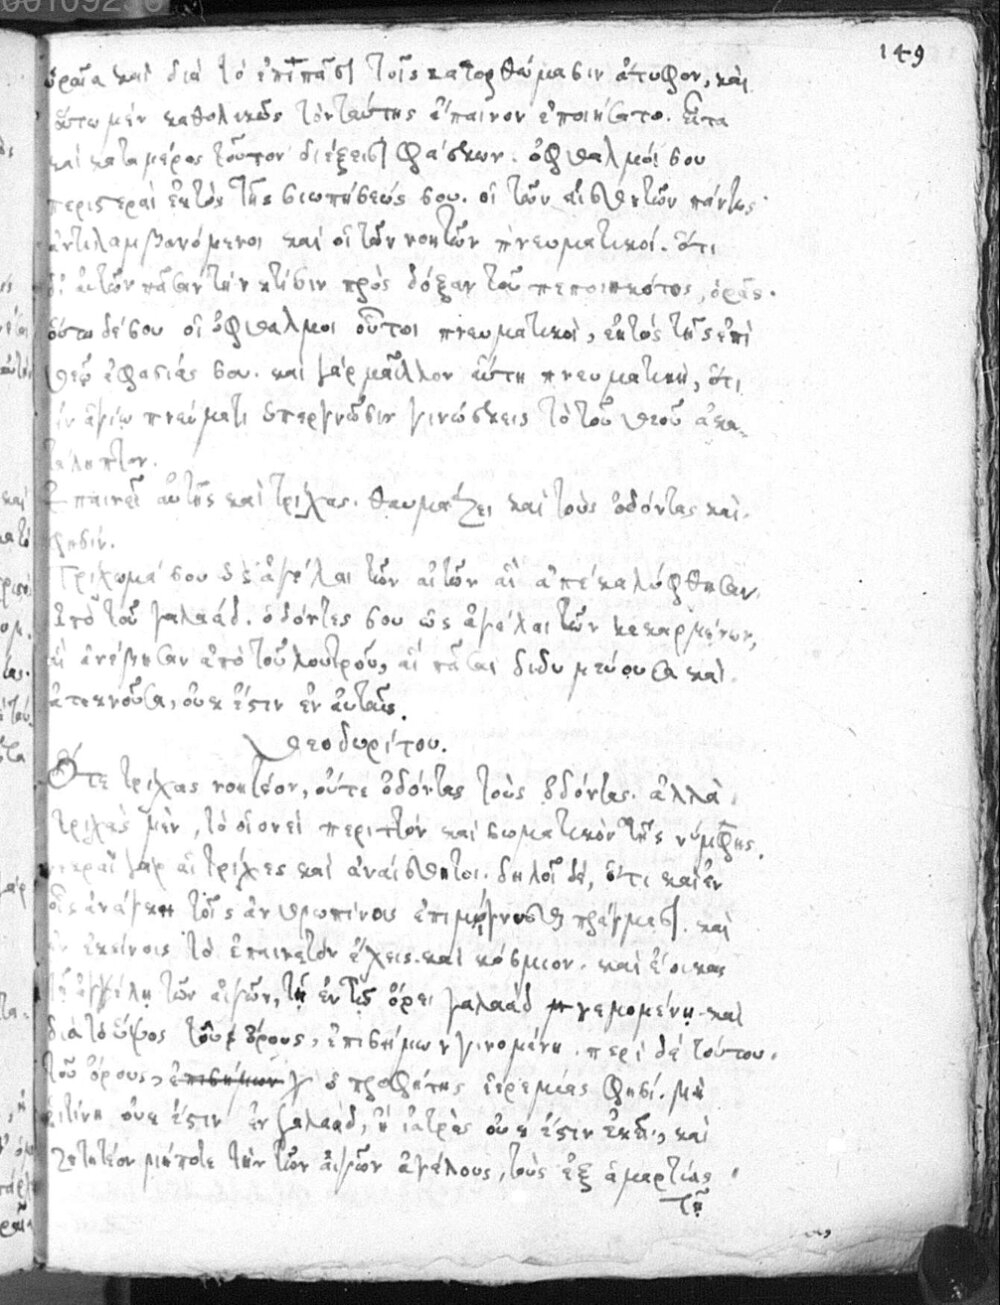 00109236
149
ὡραῖα καὶ διὰ τὸ ἐπὶ πᾶσι τοῖς κατορθώμασιν ἄτυφον, καὶ
οὕτω μὲν καθολικῶς τὸν ταύτης ἔπαινον ἐποιήσατο. εἶτα
καὶ κατὰ μέρος τοῦτον διέξεισι φάσκων. ὀφθαλμοί σου
περιστεραὶ ἐκτὸς τῆς σιωπήσεώς σου. οἱ τῶν αἰσθητῶν πάντως
ἀντιλαμβανόμενοι καὶ οἱ τῶν νοητῶν πνευματικοί. ὅτι
δι' αὐτῶν πᾶσαν τὴν κτίσιν πρὸς δόξαν τοῦ πεποιηκότος, ὁρᾷς.
οὕτω δέ σου οἱ ὀφθαλμοὶ οὗτοι πνευματικοὶ, ἐκτὸς τῆς ἐπὶ
θεῷ ἀφασίας σου. καὶ γὰρ μᾶλλον αὕτη πνευματικὴ, ὅτι
ἐν ἁγίῳ πνεύματι ὑπὲρ γνῶσιν γινώσκεις τὸ τοῦ θεοῦ ἀκα-
τάληπτον.
Ἐπαινεῖ αὐτῆς καὶ τρίχας. θαυμάζει καὶ τοὺς ὀδόντας καὶ
φησίν.
Τρίχωμά σου ὡς ἀγέλαι τῶν αἰγῶν αἳ ἀπεκαλύφθησαν
ἀπὸ τοῦ γαλαάδ. ὀδόντες σου ὡς ἀγέλαι τῶν κεκαρμένων,
αἳ ἀνέβησαν ἀπὸ τοῦ λουτροῦ, αἱ πᾶσαι διδυμεύουσαι καὶ
ἀτεκνοῦσα, οὐκ ἔστιν ἐν αὐταῖς.
θεοδωρίτου.
Οὔτε τρίχας νοητέον, οὔτε ὀδόντας τοὺς ὀδόντας. ἀλλὰ
τρίχας μὲν, τὸ οἱονεὶ περιττὸν καὶ σωματικὸν τῆς νύμφης.
νεκραὶ γὰρ αἱ τρίχες καὶ ἀναίσθητοι. δηλοῖ δὲ, ὅτι καὶ ἐν
οἷς ἀνάγκη τοῖς ἀνθρωπίνοις ἐπιμίγνυσθαι πράγμασι. καὶ
ἐν ἐκείνοις τὸ ἐπαινετὸν ἔχεις καὶ κόσμιον. καὶ ἔοικας
τῇ ἀγέλῃ τῶν αἰγῶν, τῇ ἐν τῷ ὄρει γαλαὰδ νεμομένῃ καὶ
διὰ τὸ ὕψος τοῦ ὄρους, ἐπισήμων γινομένη. περὶ δὲ τούτου
τοῦ ὄρους, ὁ προφήτης ἱερεμίας φησί. μὴ
ῥιτίνη οὐκ ἔστιν ἐν γαλαὰδ, ἢ ἰατρὸς οὐκ ἔστιν ἐκεῖ, καὶ
ζητητέον μήποτε τὴν τῶν αἰγῶν ἀγέλους, τοὺς ἐξ ἁμαρτίας
τῇ